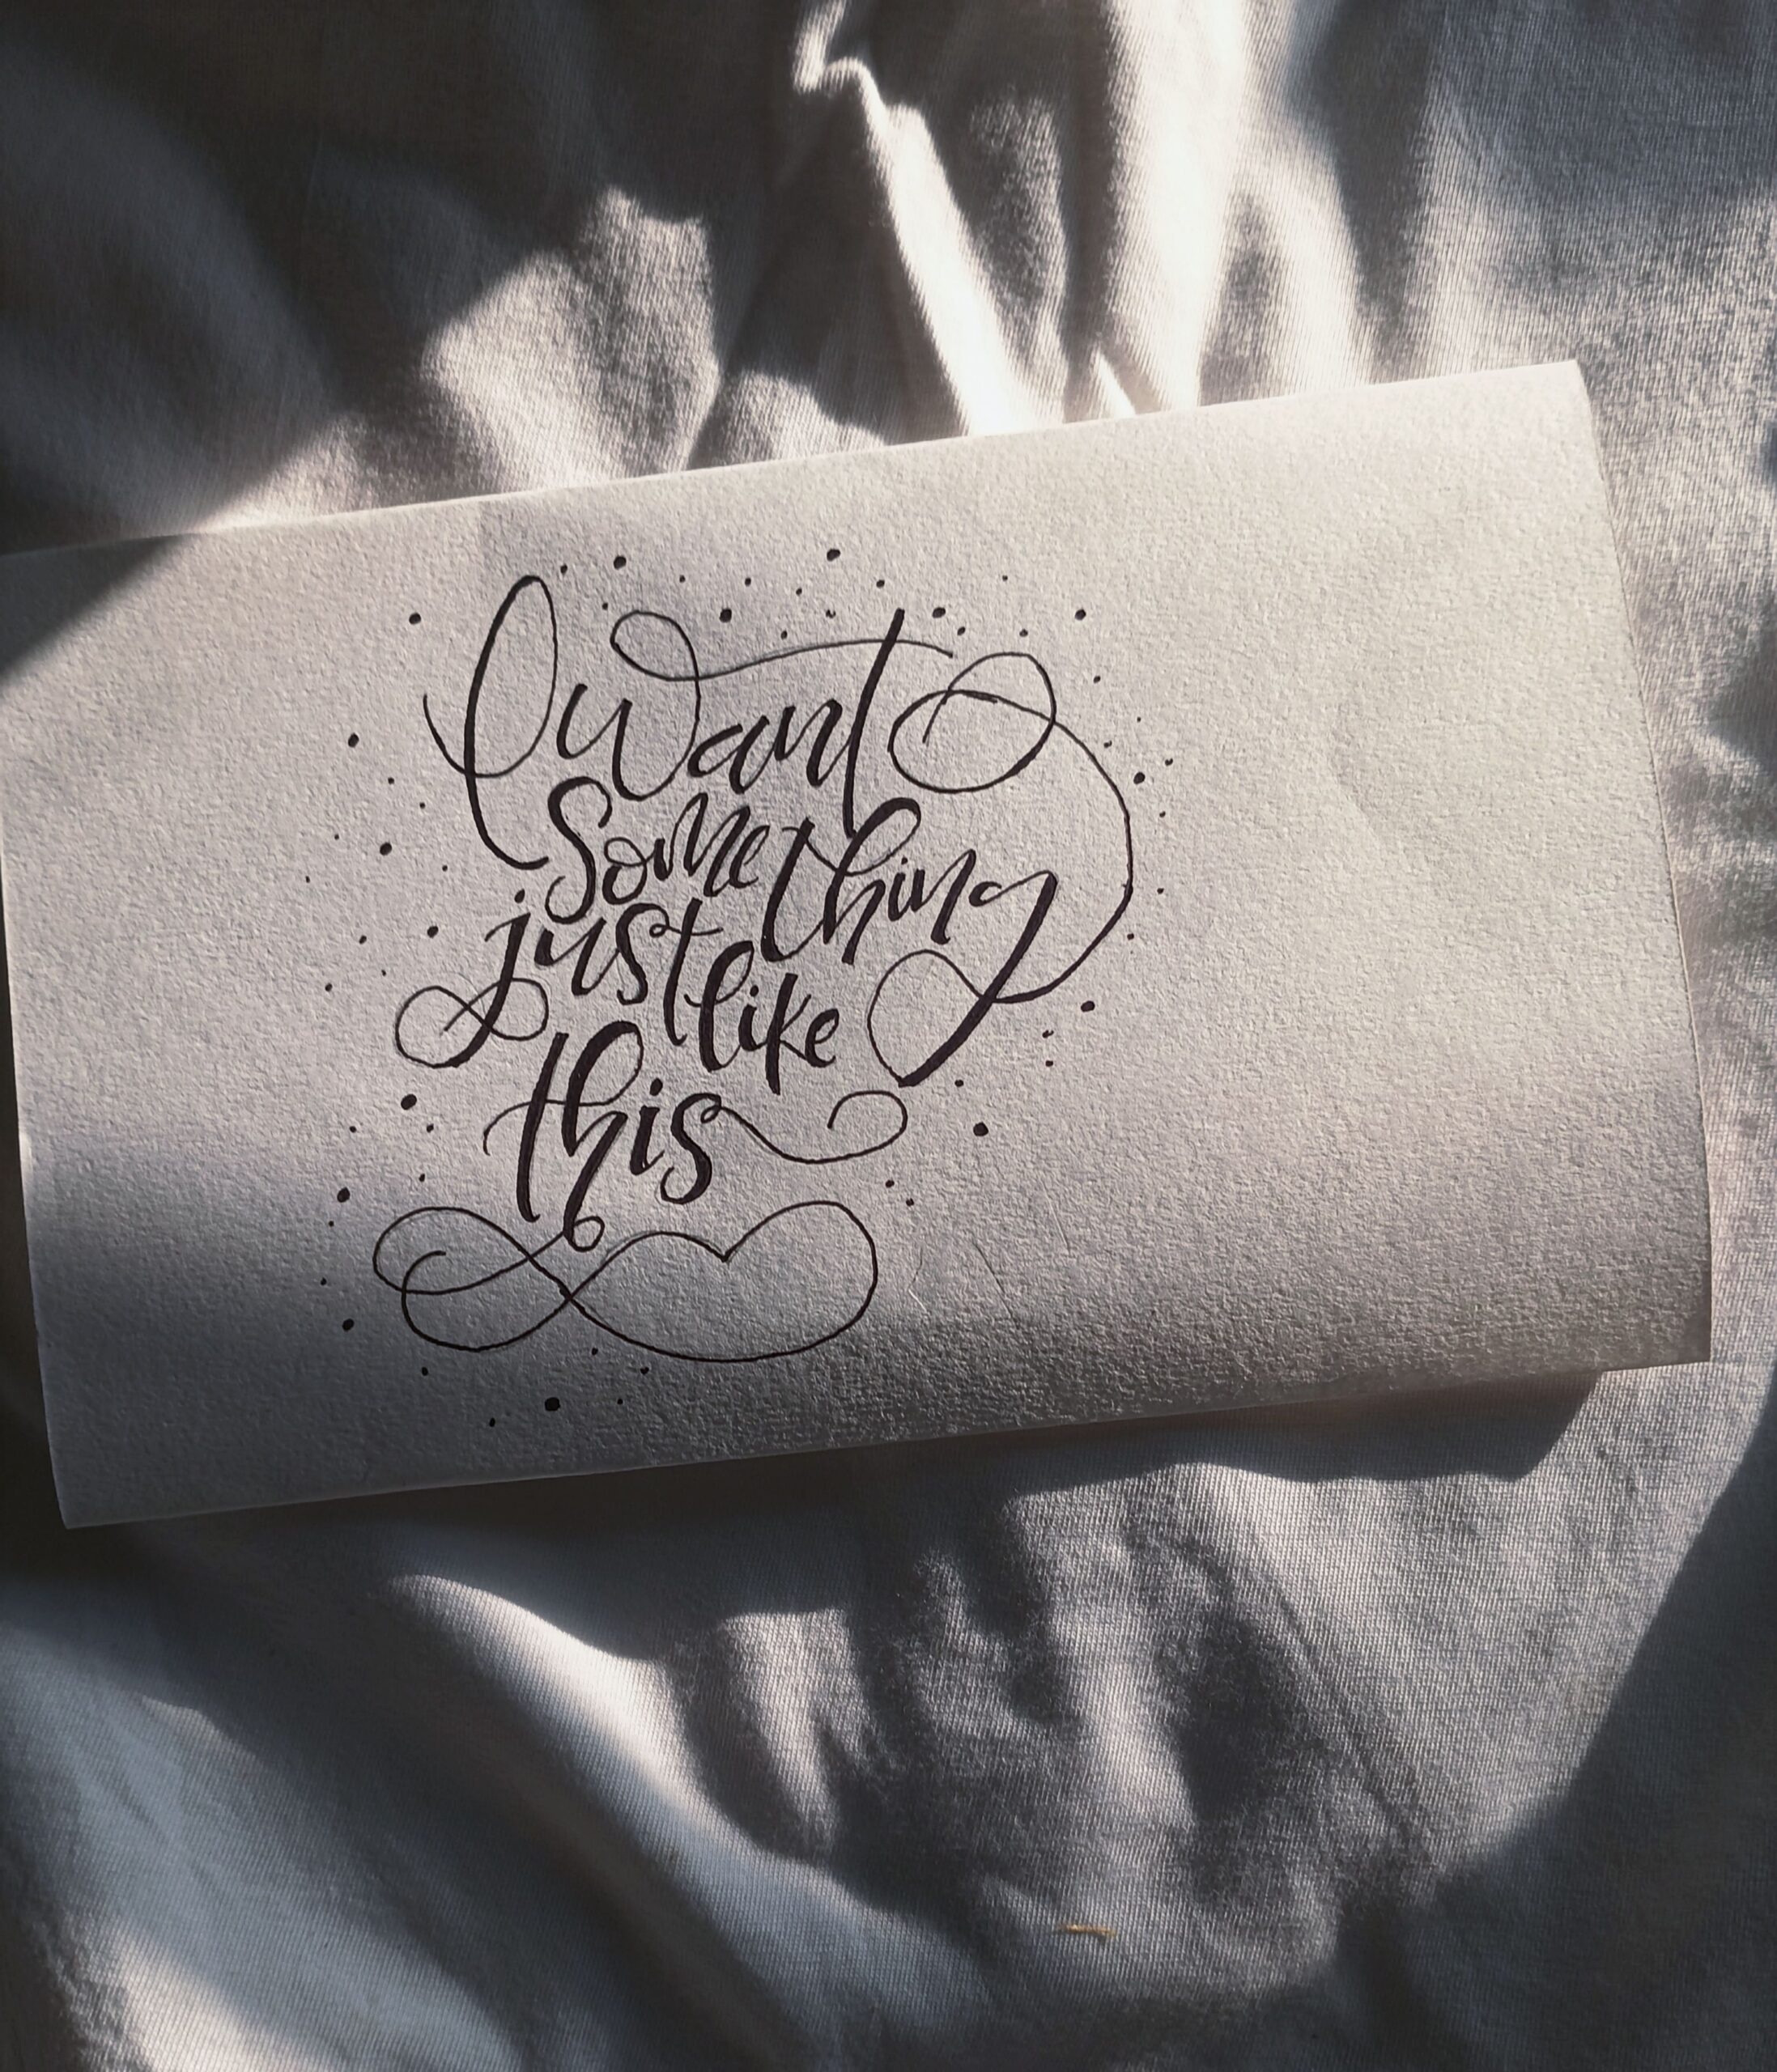 I want
something
just like
this